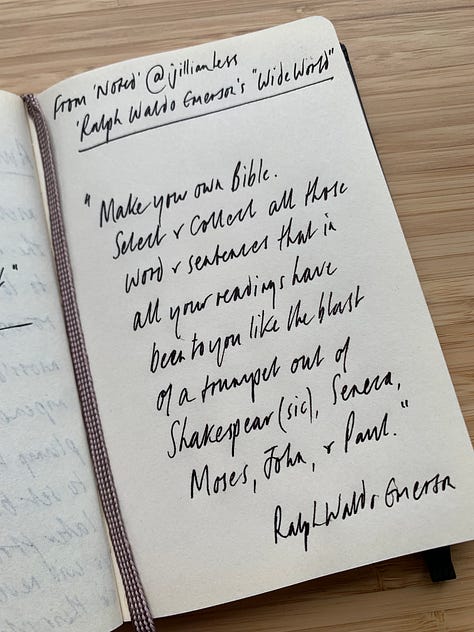 From 'Noted' @jillianless
'Ralph Waldo Emerson's "Wide World"
"Make your own Bible.
Select & Collect all those
word & sentences that in
all your readings have
been to you like the blast
of a trumpet out of
Shakespear (sic), Seneca,
Moses, John, & Paul."
Ralph Waldo Emerson